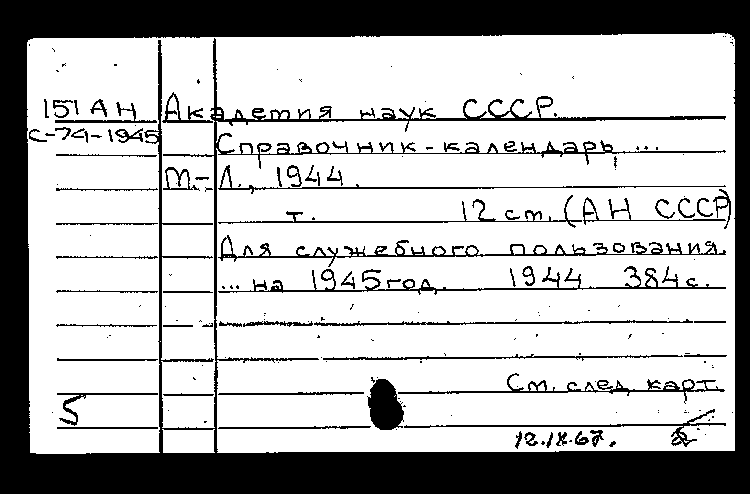 151 АН Академия наук СССР.
С-74-1945 Справочник-календарь, ...
М.-Л., 1944.
т. 12 см. (АН СССР)
Для служебного пользования.
... на 1945 год. 1944 384 с.
См. след. карт.
5
12.IX.67.